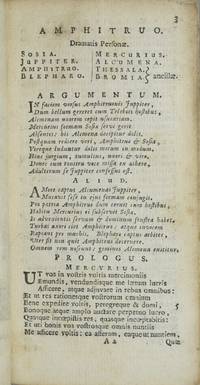 3
AMPHITRUO.
Dramatis Personæ.
SOSIA. MERCURIUS.
JUPPITER. ALCUMENA.
AMPHITRUO. THESSALA.
BLEPHARO. BROMIA. ancillæ.
ARGUMENTUM.
IN faciem versus Amphitruonis Juppiter,
Dum bellum gereret cum Telebois hostibus,
Alcmenam uxorem cepit usurariam.
Mercurius formam Sosiæ servi gerit
Absentis: his Alcmena decipitur dolis.
Postquam rediere veri, Amphitruo & Sosia,
Uterque luduntur dolis mirum in modum.
Hinc jurgium, tumultus, uxori & viro.
Donec cum tonitru voce missa ex æthere,
Adulterum se Juppiter confessus est.
ALIUD.
AMore captus Alcumenas Juppiter,
Mutavit sese in ejus formam conjugis,
Pro patria Amphitruo dum cernit cum hostibus,
Habitu Mercurius ei subservit Sosiæ,
Is advenientis servum & dominum frustra habet.
Turbas uxori ciet Amphitruo: atque invicem
Raptant pro mœchis. Blepharo captus arbiter,
Uter sit non quit Amphitruo decernere.
Omnem rem noscunt: geminos Alcumena enititur.
PROLOGUS.
MERCURIUS.
UT vos in vostris voltis mercimoniis
Emundis, vendundisque me lætum lucris
Afficere, atque adjuvare in rebus omnibus:
Et ut res rationesque vostrorum omnium
Bene expedire voltis, peregrique & domi,
Bonoque atque amplo auctare perpetuo lucro,
Quasque incepistis res, quasque inceptabitis:
Et uti bonis vos vostrosque omnis nuntiis
Me adficere voltis: ea afferam, eaque ut nuntiem,
A a Quæ